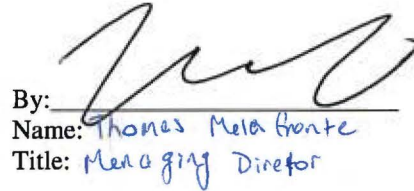 By:
Name: Thomas Melafronte
Title: Managing Diretor